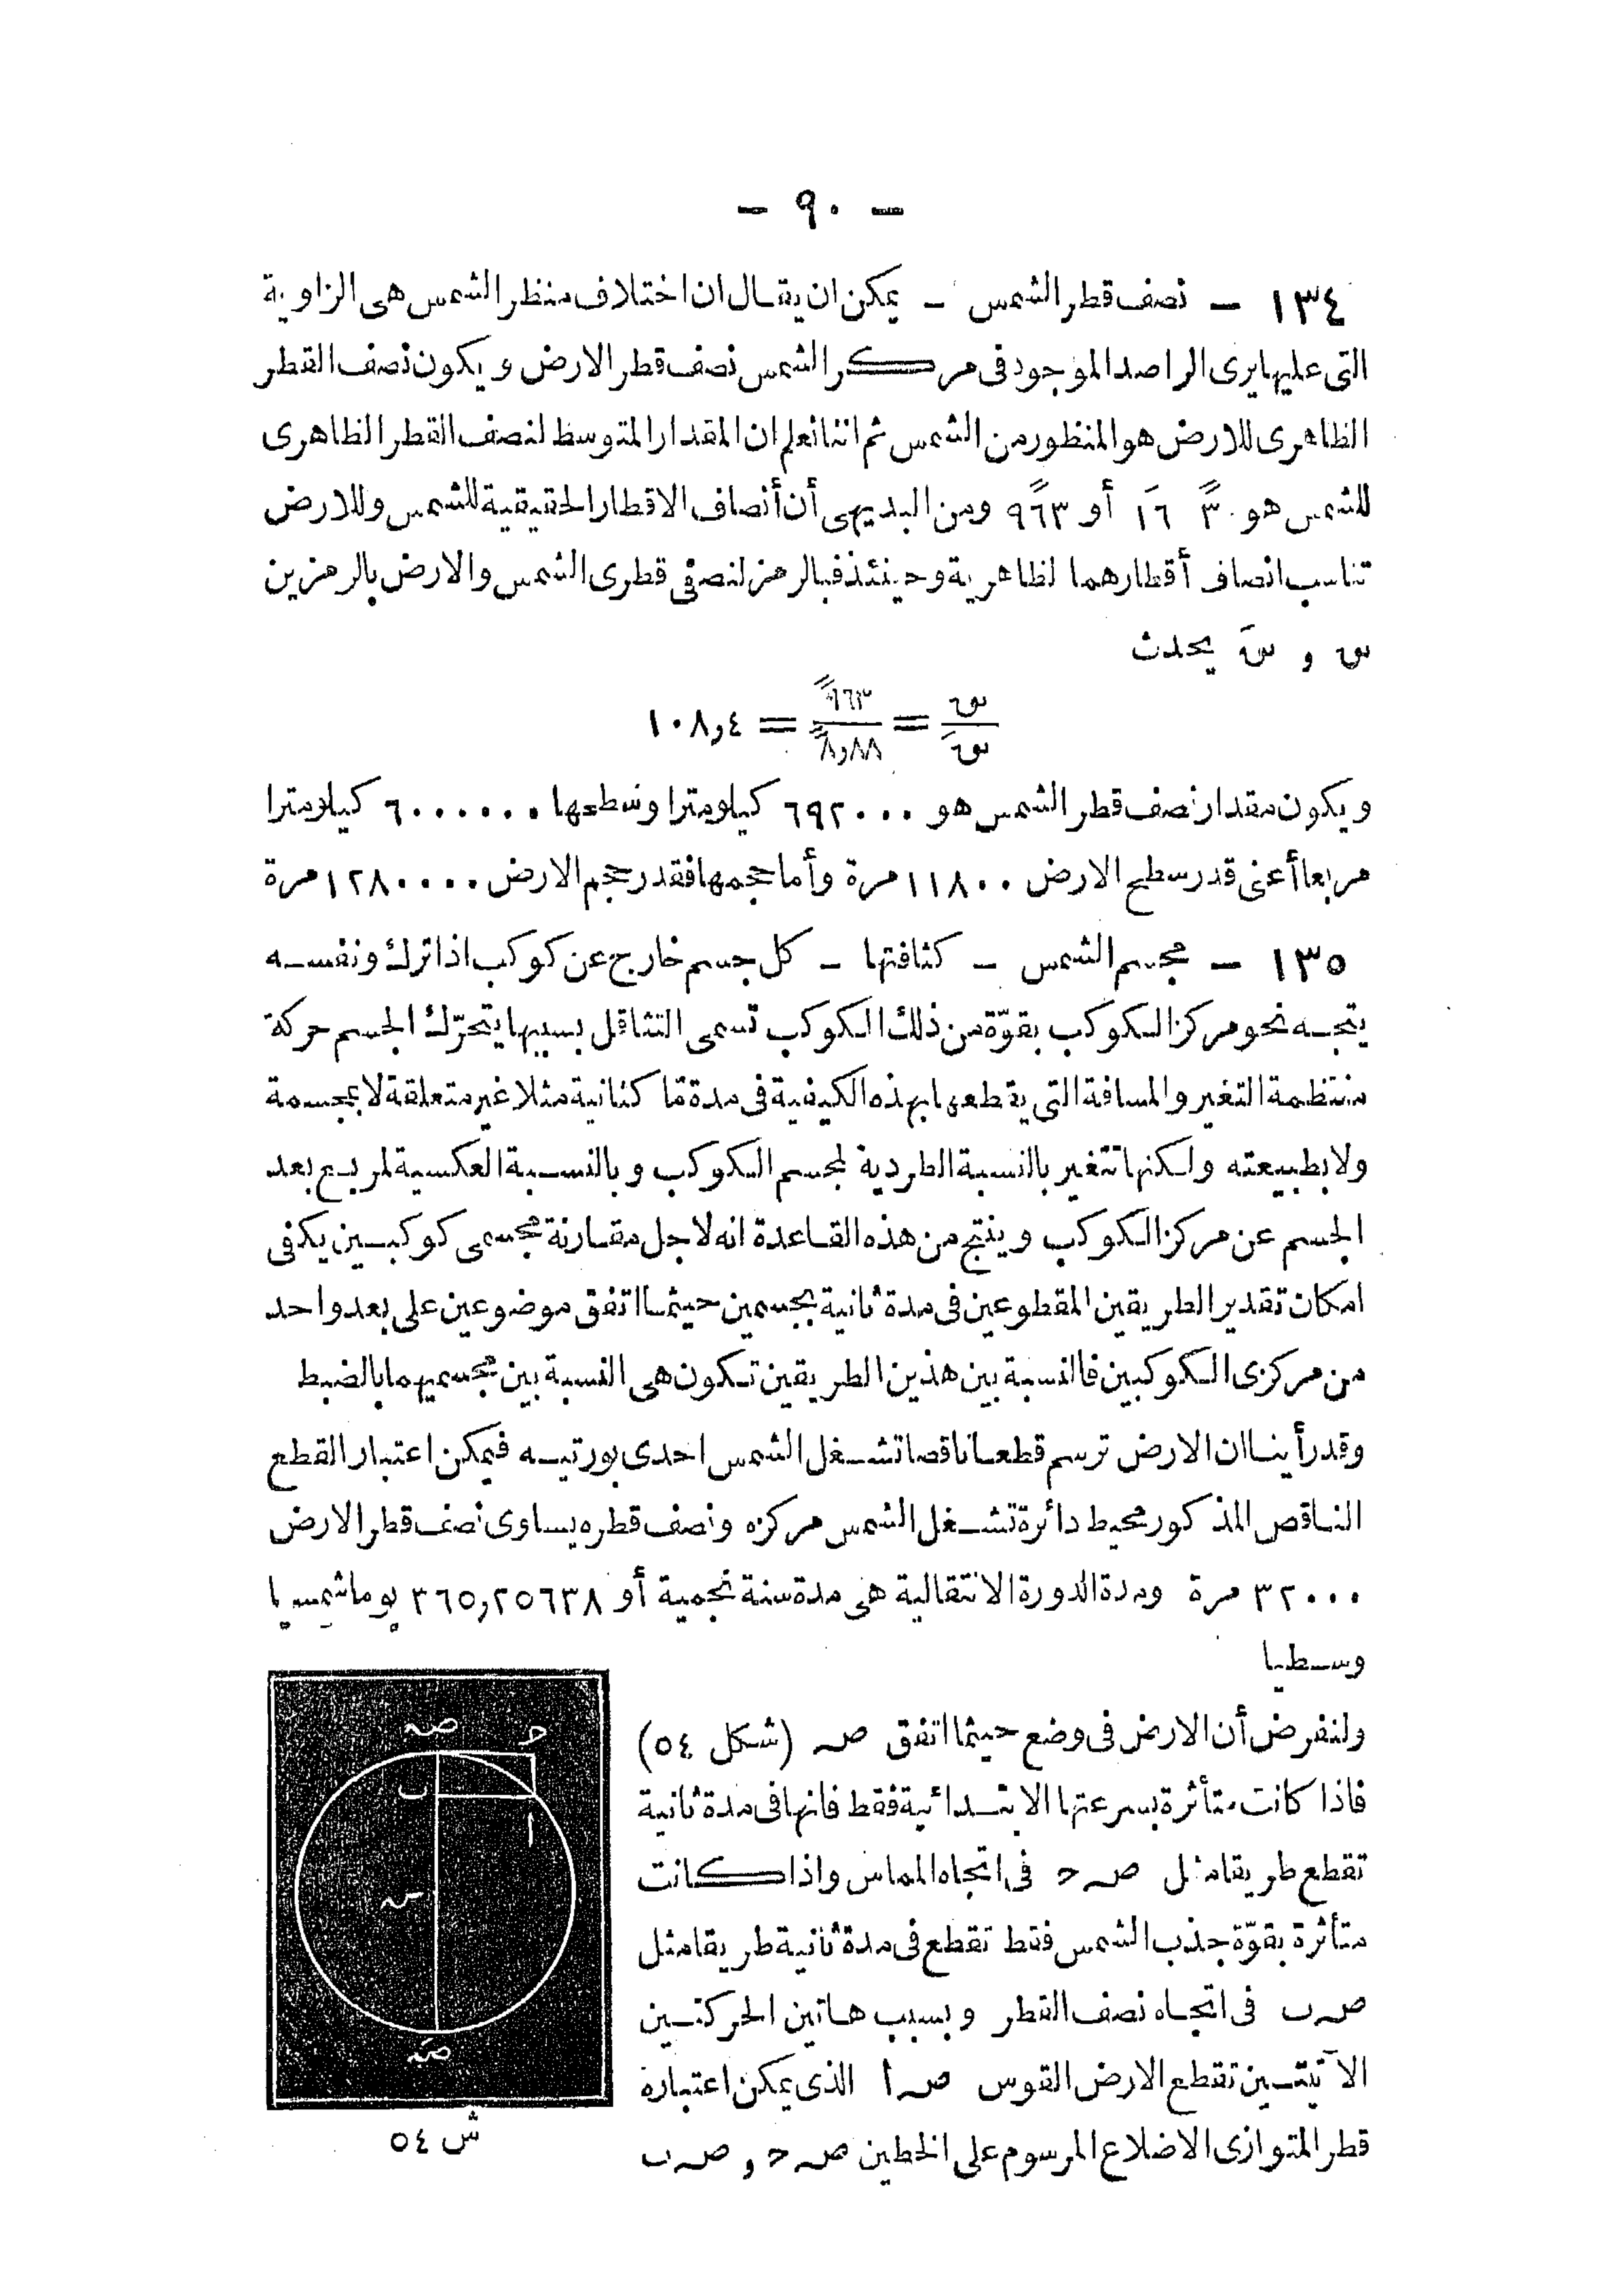 — ٩٠ —
١٣٤ — نصف قطر الشمس — يمكن ان يقال ان اختلاف منظر الشمس هى الزاوية
التى عليها يرى الراصد الموجود فى مركز الشمس نصف قطر الارض ويكون نصف القطر
الظاهرى للارض هو المنظور من الشمس ثم اننا نعلم ان المقدار المتوسط لنصف القطر الظاهرى
للشمس هو ٣ً ١٦َ أو ٩٦٣ً ومن البديهى أن أنصاف الاقطار الحقيقية للشمس وللارض
تناسب انصاف أقطارهما لظاهرية وحينئذ فبالرمز لنصفى قطرى الشمس والارض بالرمزين
س و سَ يحدث
س/سَ = ٩٦٣ً/٨,٨٨ً = ١٠٨,٤
ويكون مقدار نصف قطر الشمس هو ٦٩٢٠٠٠ كيلومترا وسطحها ٦٠٠٠٠٠٠ كيلومترا
مربعا أعنى قدر سطح الارض ١١٨٠٠ مرة وأما حجمها فقدر حجم الارض ١٢٨٠٠٠٠ مرة
١٣٥ — مجسم الشمس — كثافتها — كل جسم خارج عن كوكب اذا ترك ونفسه
يتجه نحو مركز الكوكب بقوّة من ذلك الكوكب تسمى التثاقل بسببها يتحرّك الجسم حركة
منتظمة التغير والمسافة التى يقطعها بهذه الكيفية فى مدة مّا كثانية مثلا غير متعلقة لا بمجسمة
ولا بطبيعته ولكنها تتغير بالنسبة الطردية لمجسم الكوكب وبالنسبة العكسية لمربع بعد
الجسم عن مركز الكوكب وينتج من هذه القاعدة انه لاجل مقارنة مجسمى كوكبين يكفى
امكان تقدير الطريقين المقطوعين فى مدة ثانية بجسمين حيثما اتفق موضوعين على بعد واحد
من مركزى الكوكبين فالنسبة بين هذين الطريقين تكون هى النسبة بين مجسميهما بالضبط
وقد رأينا ان الارض ترسم قطعا ناقصا تشغل الشمس احدى بورتيه فيمكن اعتبار القطع
الناقص المذكور محيط دائرة تشغل الشمس مركزه ونصف قطره يساوى نصف قطر الارض
٣٢٠٠٠ مرة ومدة الدورة الانتقالية هى مدة سنة نجمية أو ٣٦٥,٢٥٦٣٨ يوما شمسيا
وسطيا
ولنفرض أن الارض فى وضع حيثما اتفق صہ (شكل ٥٤)
فاذا كانت متأثرة بسرعتها الابتدائية فقط فانها فى مدة ثانية
تقطع طريقا مثل صہ ح فى اتجاه المماس واذا كانت
متأثرة بقوّة جذب الشمس فقط تقطع فى مدة ثانية طريقا مثل
صہ ب فى اتجاه نصف القطر وبسبب هاتين الحركتين
الآتيتين تقطع الارض القوس صہ أ الذى يمكن اعتباره
قطر المتوازى الاضلاع المرسوم على الخطين صہ ح و صہ ب
صہ ح
ب
ا
سہ
صَہ
ش ٥٤